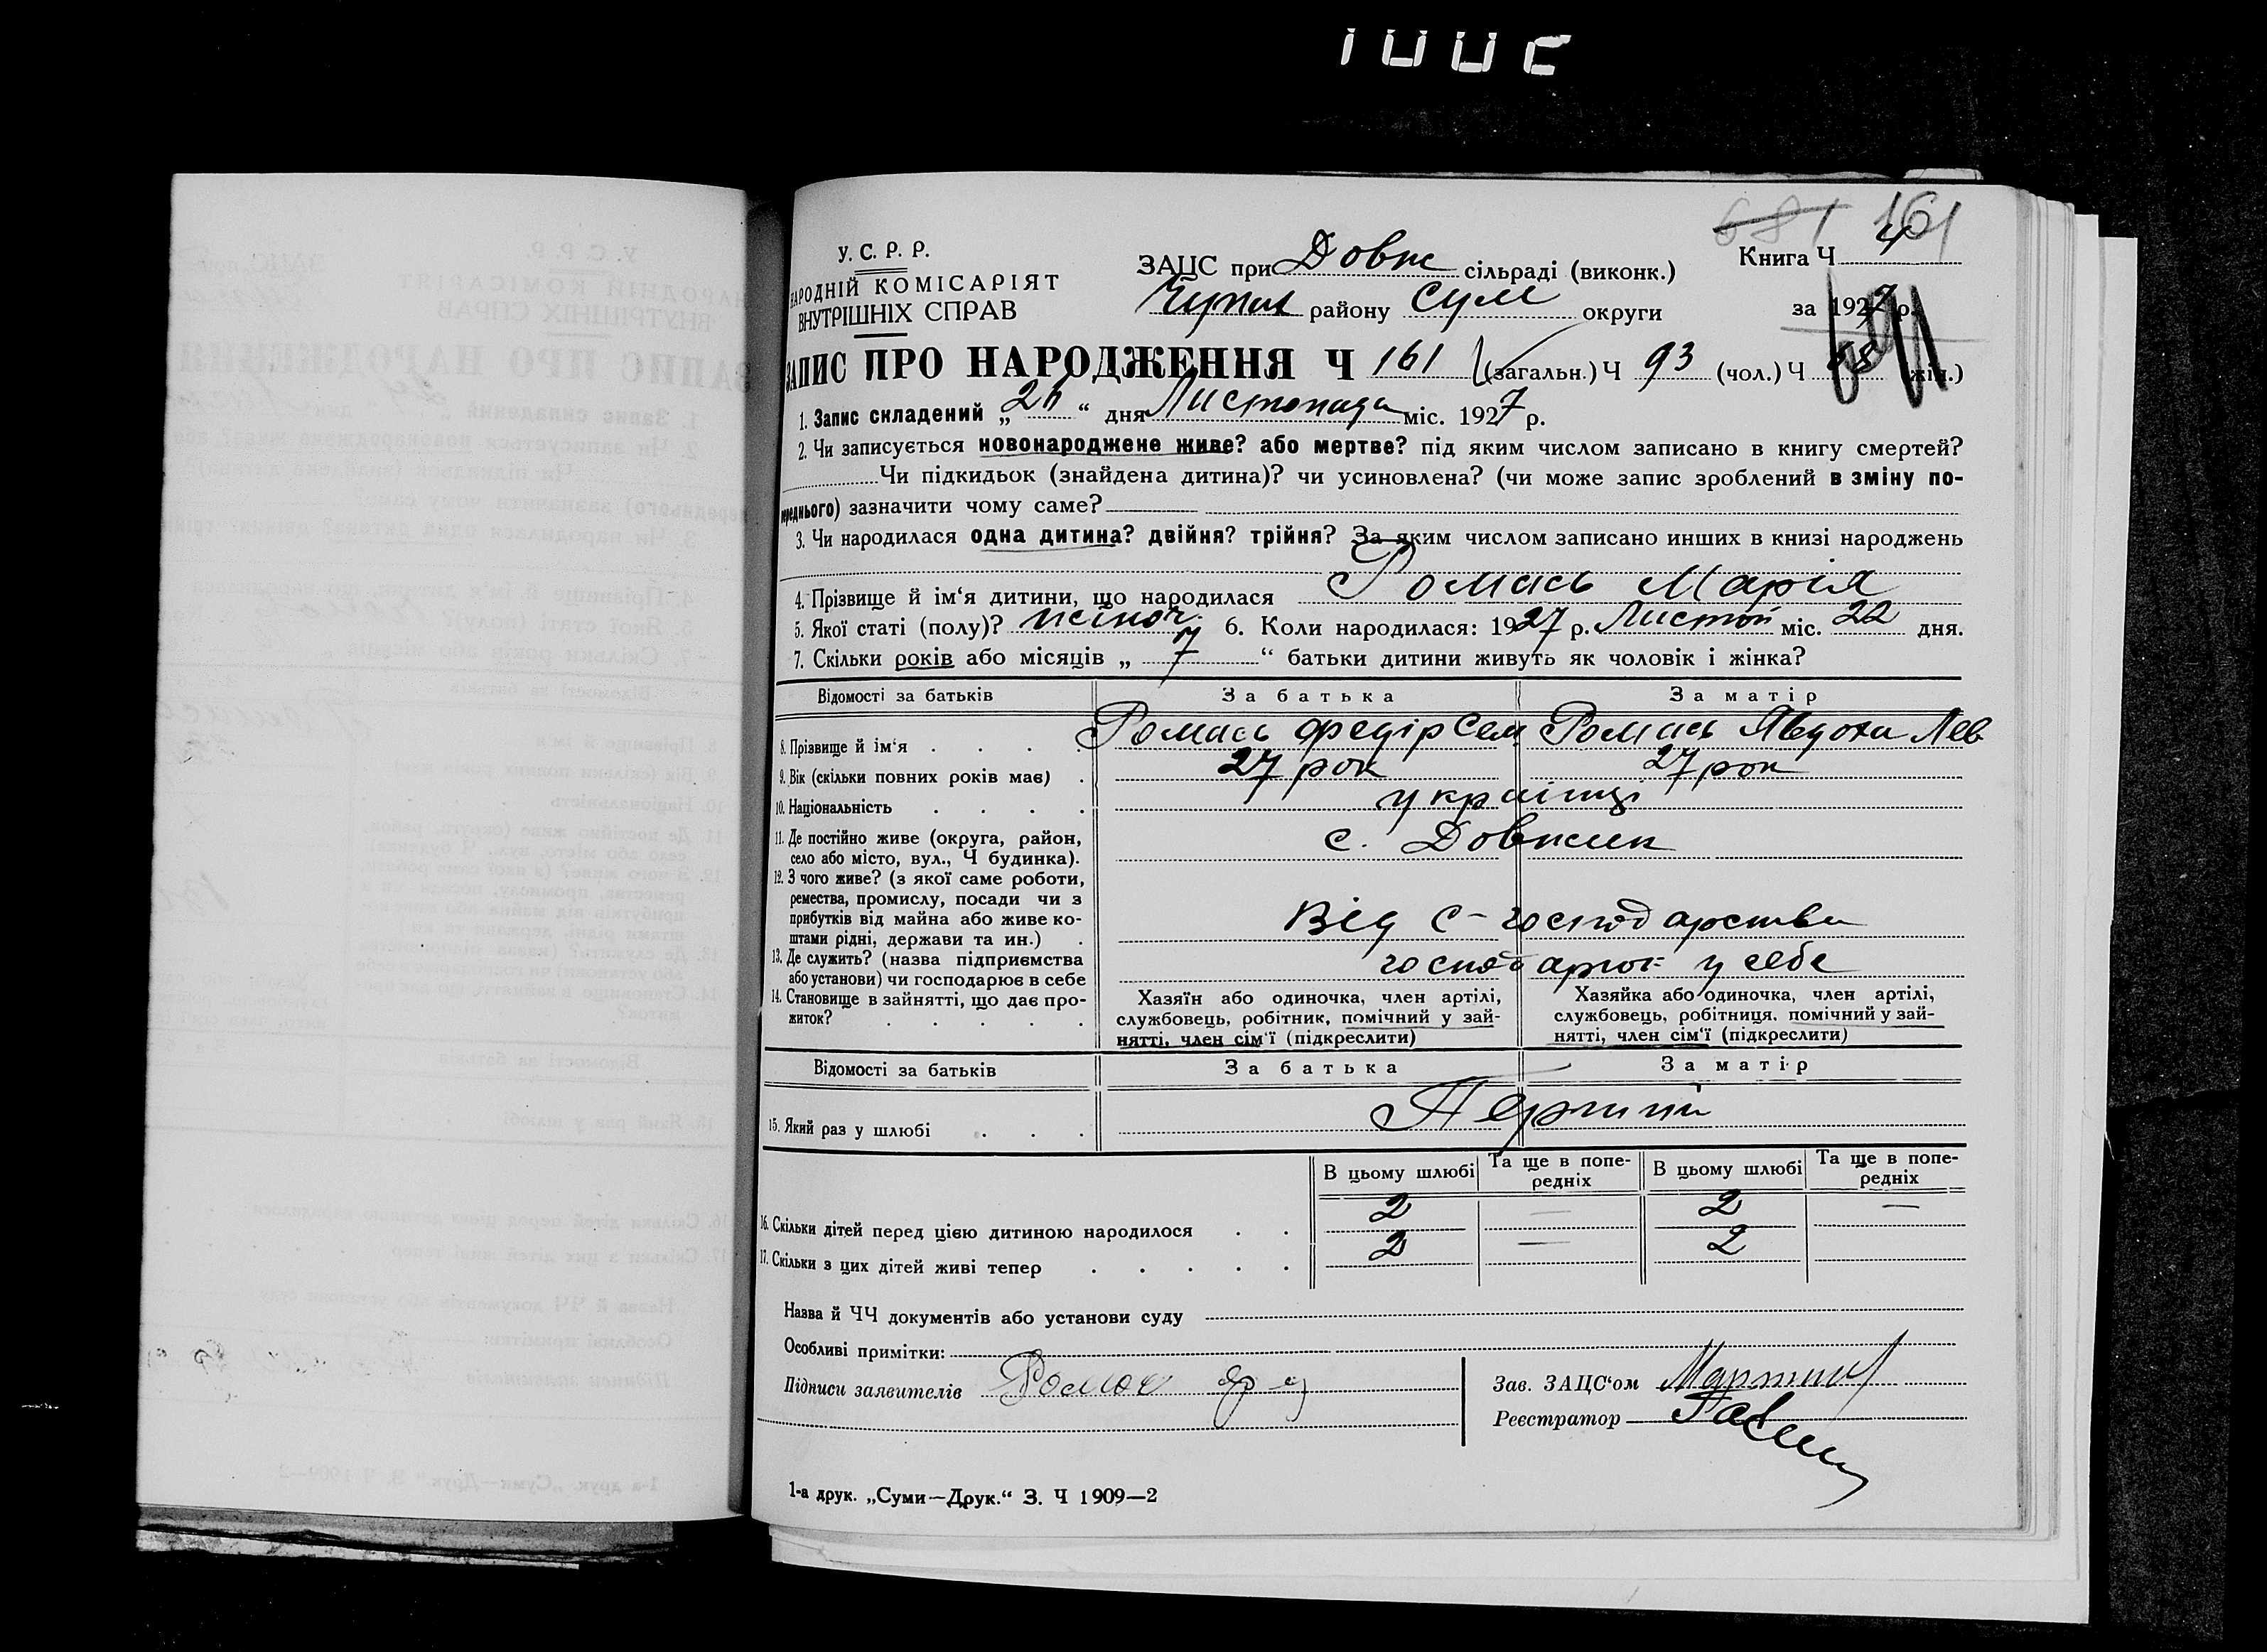 681 161
У. С. Р. Р.
НАРОДНІЙ КОМІСАРІЯТ
ВНУТРІШНІХ СПРАВ
ЗАЦС при Довж сільраді (виконк.)
Чупах району Сум округи
Книга Ч
за 1927 р.
ЗАПИС ПРО НАРОДЖЕННЯ Ч 161 (загальн.) Ч 93 (чол.) Ч 68 жін.)
1. Запис складений „ “ дня Листопада міс. 1927 р.
2. Чи записується новонароджене живе? або мертве? під яким числом записано в книгу смертей?
Чи підкидьок (знайдена дитина)? чи усиновлена? (чи може запис зроблений в зміну по-
переднього) зазначити чому саме?
3. Чи народилася одна дитина? двійня? трійня? За яким числом записано инших в книзі народжень
4. Прізвище й ім‘я дитини, що народилася Ромась Марія
5. Якої статі (полу)? жіноч. 6. Коли народилася: 1927 р. Листоп міс. 22 дня.
7. Скільки років або місяців „ 7 “ батьки дитини живуть як чоловік і жінка?
Відомості за батьків За батька За матір
8. Прізвище й ім‘я . . . . Ромась Федір Сем Ромась Явдоха Лев
9. Вік (скільки повних років має) . 27 рок 27 рок
10. Національність . . . . українці
11. Де постійно живе (округа, район,
село або місто, вул., Ч будинка). с. Довжик
12. З чого живе? (з якої саме роботи,
ремества, промислу, посади чи з
прибутків від майна або живе ко-
штами рідні, держави та ин.) . Від с-господарства
13. Де служить? (назва підприємства
або установи) чи господарює в себе господарює у себе
14. Становище в зайнятті, що дає про-
житок? . . . . .
Хазяїн або одиночка, член артілі,
службовець, робітник, помічний у зай-
нятті, член сім‘ї (підкреслити)
Хазяйка або одиночка, член артілі,
службовець, робітниця, помічний у зай-
нятті, член сім‘ї (підкреслити)
Відомості за батьків За батька За матір
15. Який раз у шлюбі . . . Перший
В цьому шлюбі Та ще в попе-редніх В цьому шлюбі Та ще в попе-редніх
16. Скільки дітей перед цією дитиною народилося . . 2 — 2 —
17. Скільки з цих дітей живі тепер . . . . . 2 — 2
Назва й ЧЧ документів або установи суду
Особливі примітки:
Підписи заявителів Ромас
Зав. ЗАЦС‘ом
Реєстратор
1-а друк. „Суми—Друк.“ З. Ч 1909—2